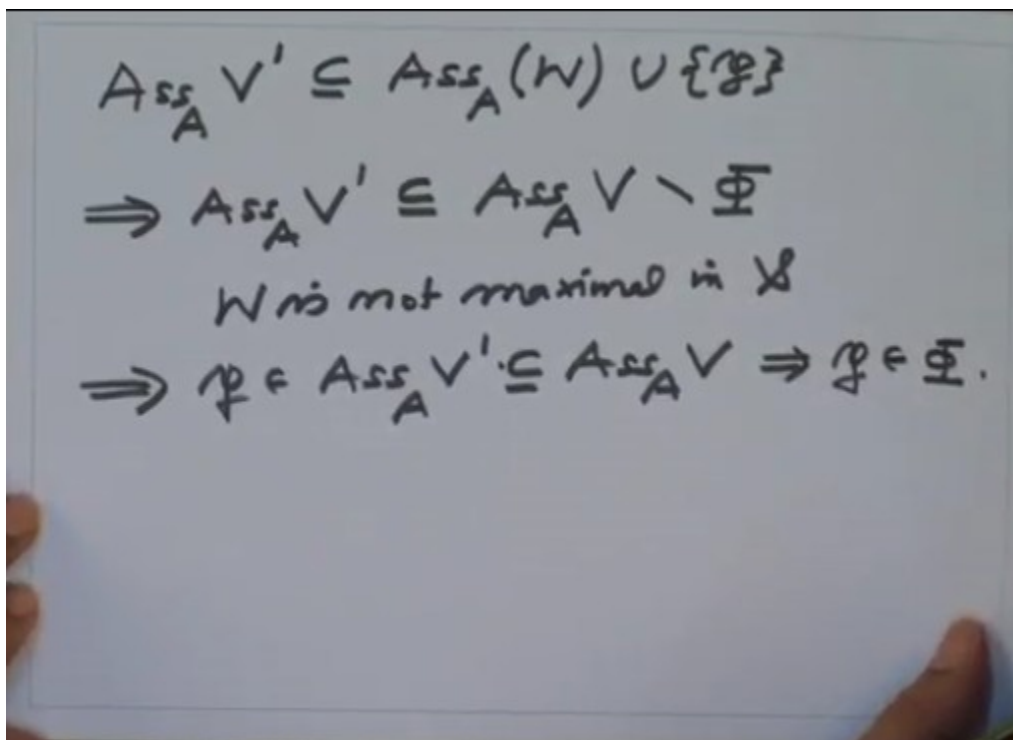 Ass_A V' ⊆ Ass_A (W) ∪ {𝔭}
⟹ Ass_A V' ⊆ Ass_A V \ Φ
W is not maximal in 𝒮
⟹ 𝔭 ∈ Ass_A V' ⊆ Ass_A V ⟹ 𝔭 ∈ Φ.